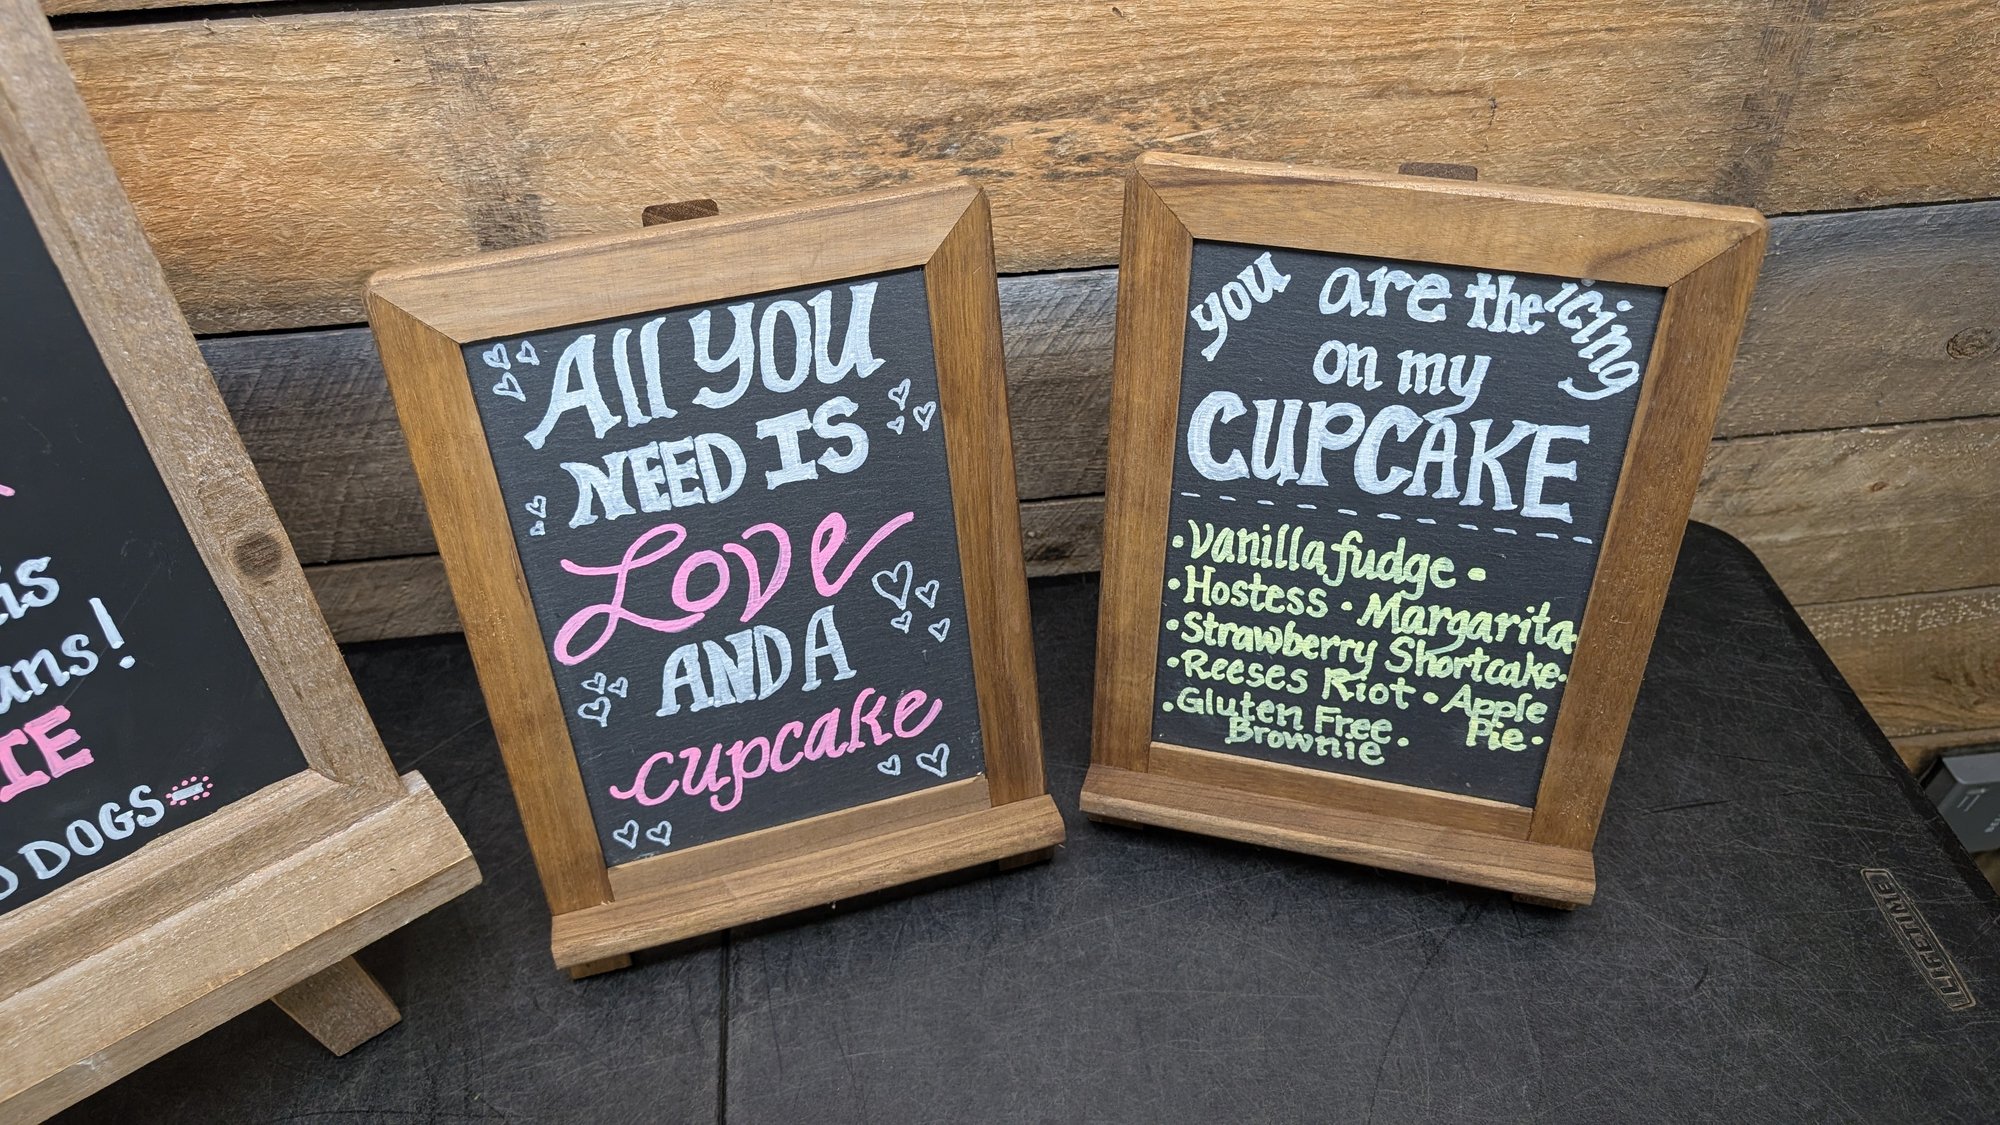 is
ans!
IE
DOGS
All YOU
NEED IS
Love
AND A
cupcake
you are the icing
on my
CUPCAKE
• Vanilla fudge •
• Hostess • Margarita
• Strawberry Shortcake •
• Reeses Riot • Apple
Pie •
• Gluten Free
Brownie •
LIFETIME